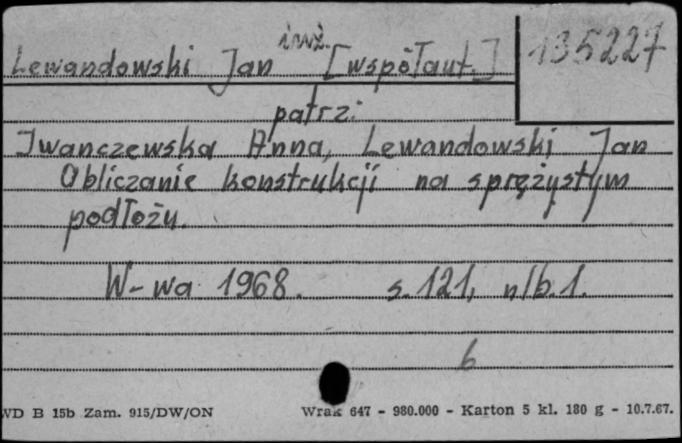 inż.
135227
Lewandowski Jan [współaut.]
patrz:
Iwanczewska Anna, Lewandowski Jan
Obliczanie konstrukcji na sprężystym
podłożu.
W-wa 1968. s. 121, nlb. 1.
6
WD B 15b Zam. 915/DW/ON Wrak 647 - 980.000 - Karton 5 kl. 180 g - 10.7.67.